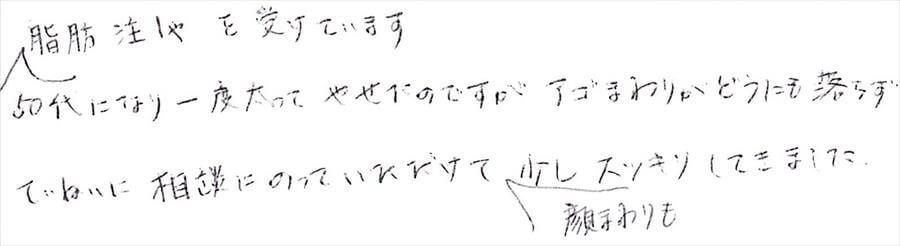 脂肪注しゃを受けています
50代になり一度太ってやせたのですがアゴまわりがどうにも落ちず
ていねいに相談にのっていただけて少しスッキリしてきました。
顔まわりも